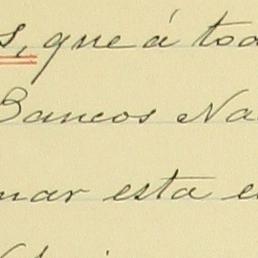 s, que á tod
Bancos Na
mar esta e